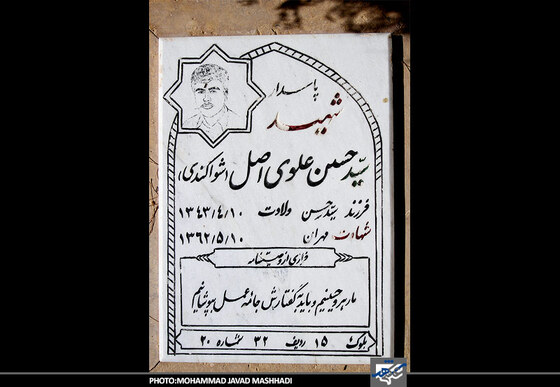 پاسدار
شهید
سید حسین علوی اصل (شواکندی)
فرزند سید حسن ولادت ۱۳۴۳/۴/۱۰
شهادت مهران ۱۳۶۲/۵/۱۰
فرازی از وصیتنامه
ما رهرو حسینیم و باید به گفتارش جامه عمل بپوشانیم
بلوک ۱۵ ردیف ۳۲ شماره ۲۰
PHOTO:MOHAMMAD JAVAD MASHHADI